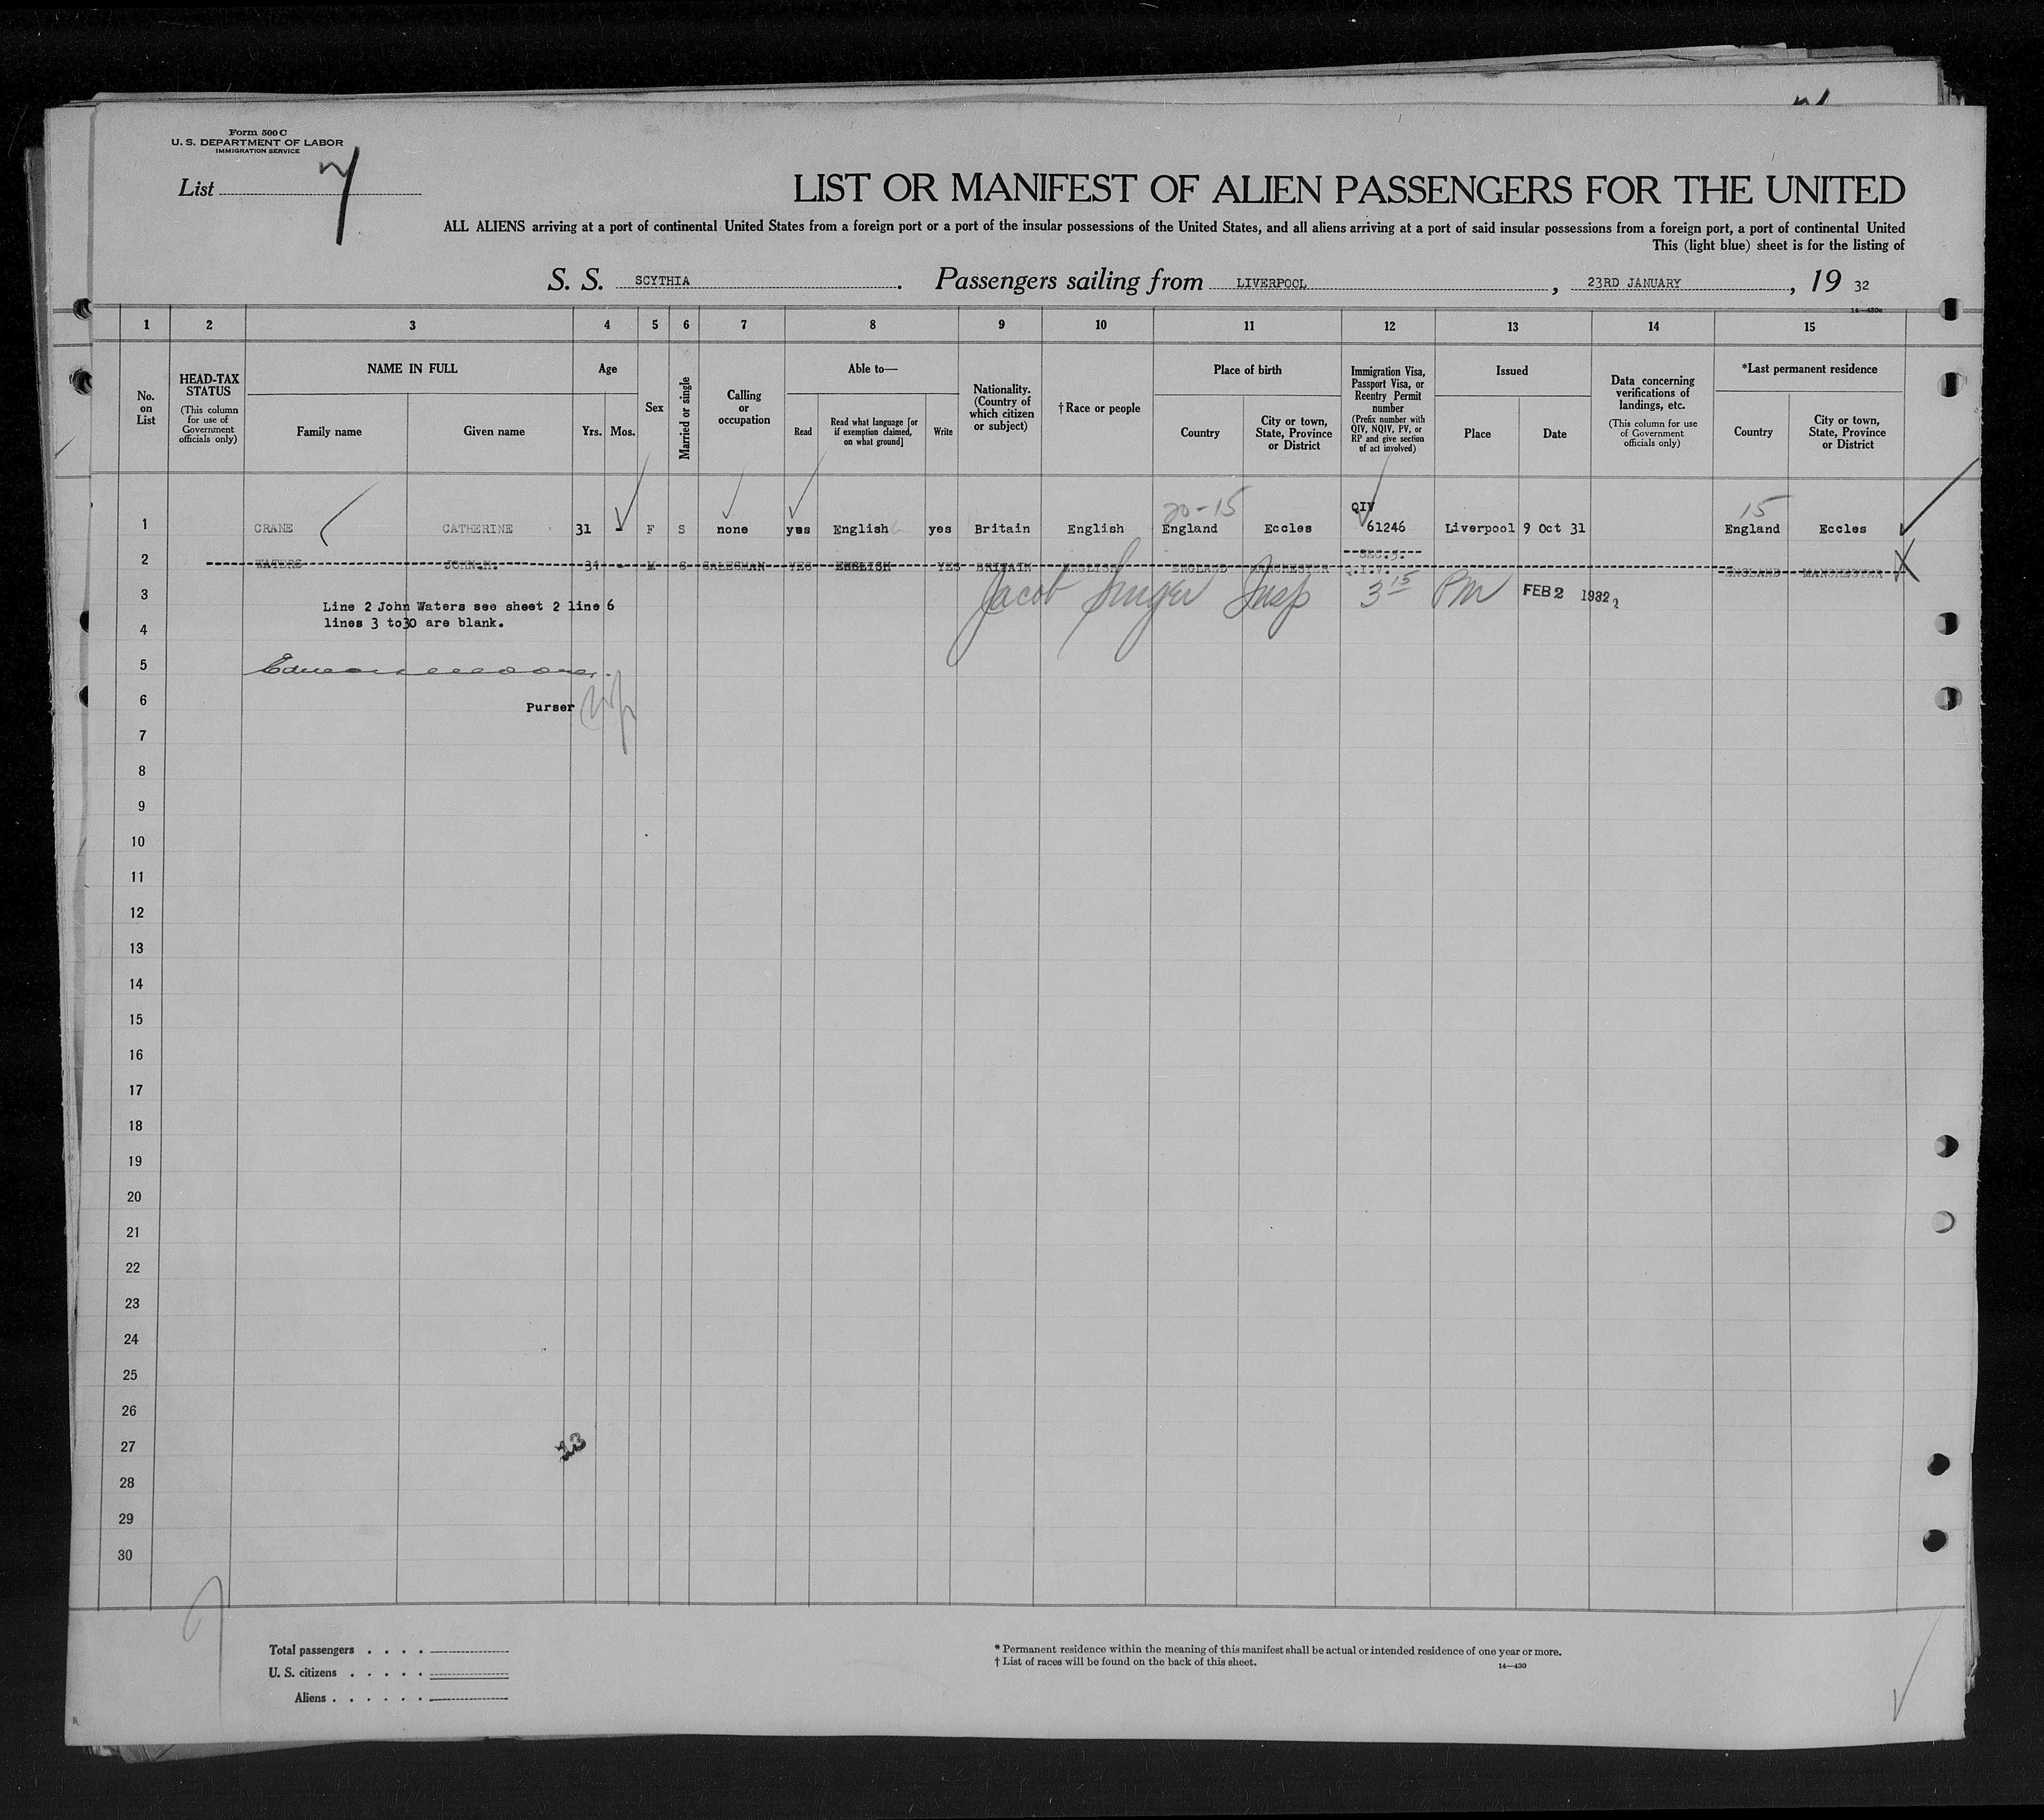 Form 500 C
U. S. DEPARTMENT OF LABOR
IMMIGRATION SERVICE
List
LIST OR MANIFEST OF ALIEN PASSENGERS FOR THE UNITED
ALL ALIENS arriving at a port of continental United States from a foreign port or a port of the insular possessions of the United States, and all aliens arriving at a port of said insular possessions from a foreign port, a port of continental United
This (light blue) sheet is for the listing of
S. S. SCYTHIA . Passengers sailing from LIVERPOOL , 23RD JANUARY , 19 32
14—430a
1 2 3 4 5 6 7 8 9 10 11 12 13 14 15
No. on List
HEAD-TAX STATUS (This column for use of Government officials only)
NAME IN FULL
Family name
Given name
Age
Yrs.
Mos.
Sex
Married or single
Calling or occupation
Able to—
Read
Read what language [or if exemption claimed, on what ground]
Write
Nationality. (Country of which citizen or subject)
† Race or people
Place of birth
Country
City or town, State, Province or District
Immigration Visa, Passport Visa, or Reentry Permit number (Prefix number with QIV, NQIV, PV, or RP and give section of act involved)
Issued
Place
Date
Data concerning verifications of landings, etc. (This column for use of Government officials only)
*Last permanent residence
Country
City or town, State, Province or District
20-15 QIV 15
1 CRANE CATHERINE 31 - F S none yes English yes Britain English England Eccles 61246 Liverpool 9 Oct 31 England Eccles
SEC.3.
2 WATERS JOHN.H. 34 - M S SALESMAN YES ENGLISH YES BRITAIN ENGLISH ENGLAND MANCHESTER Q.I.V. ENGLAND MANCHESTER
3 Line 2 John Waters see sheet 2 line 6 Jacob Singer Insp 3 15 PM FEB 2 1932
lines 3 to30 are blank.
4
5
6 Purser
7
8
9
10
11
12
13
14
15
16
17
18
19
20
21
22
23
24
25
26
27
13
28
29
30
Total passengers . . . .
U. S. citizens . . . . .
Aliens . . . . . .
* Permanent residence within the meaning of this manifest shall be actual or intended residence of one year or more.
† List of races will be found on the back of this sheet.
14—430